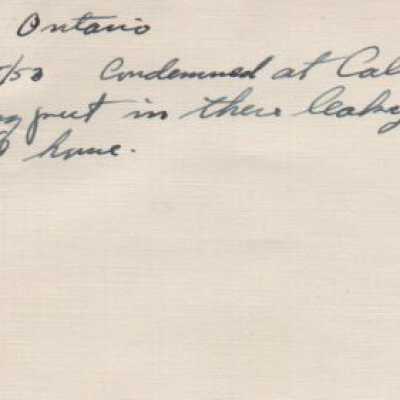 Ontario
/50 Condemned at Cal
put in there leaky
home.